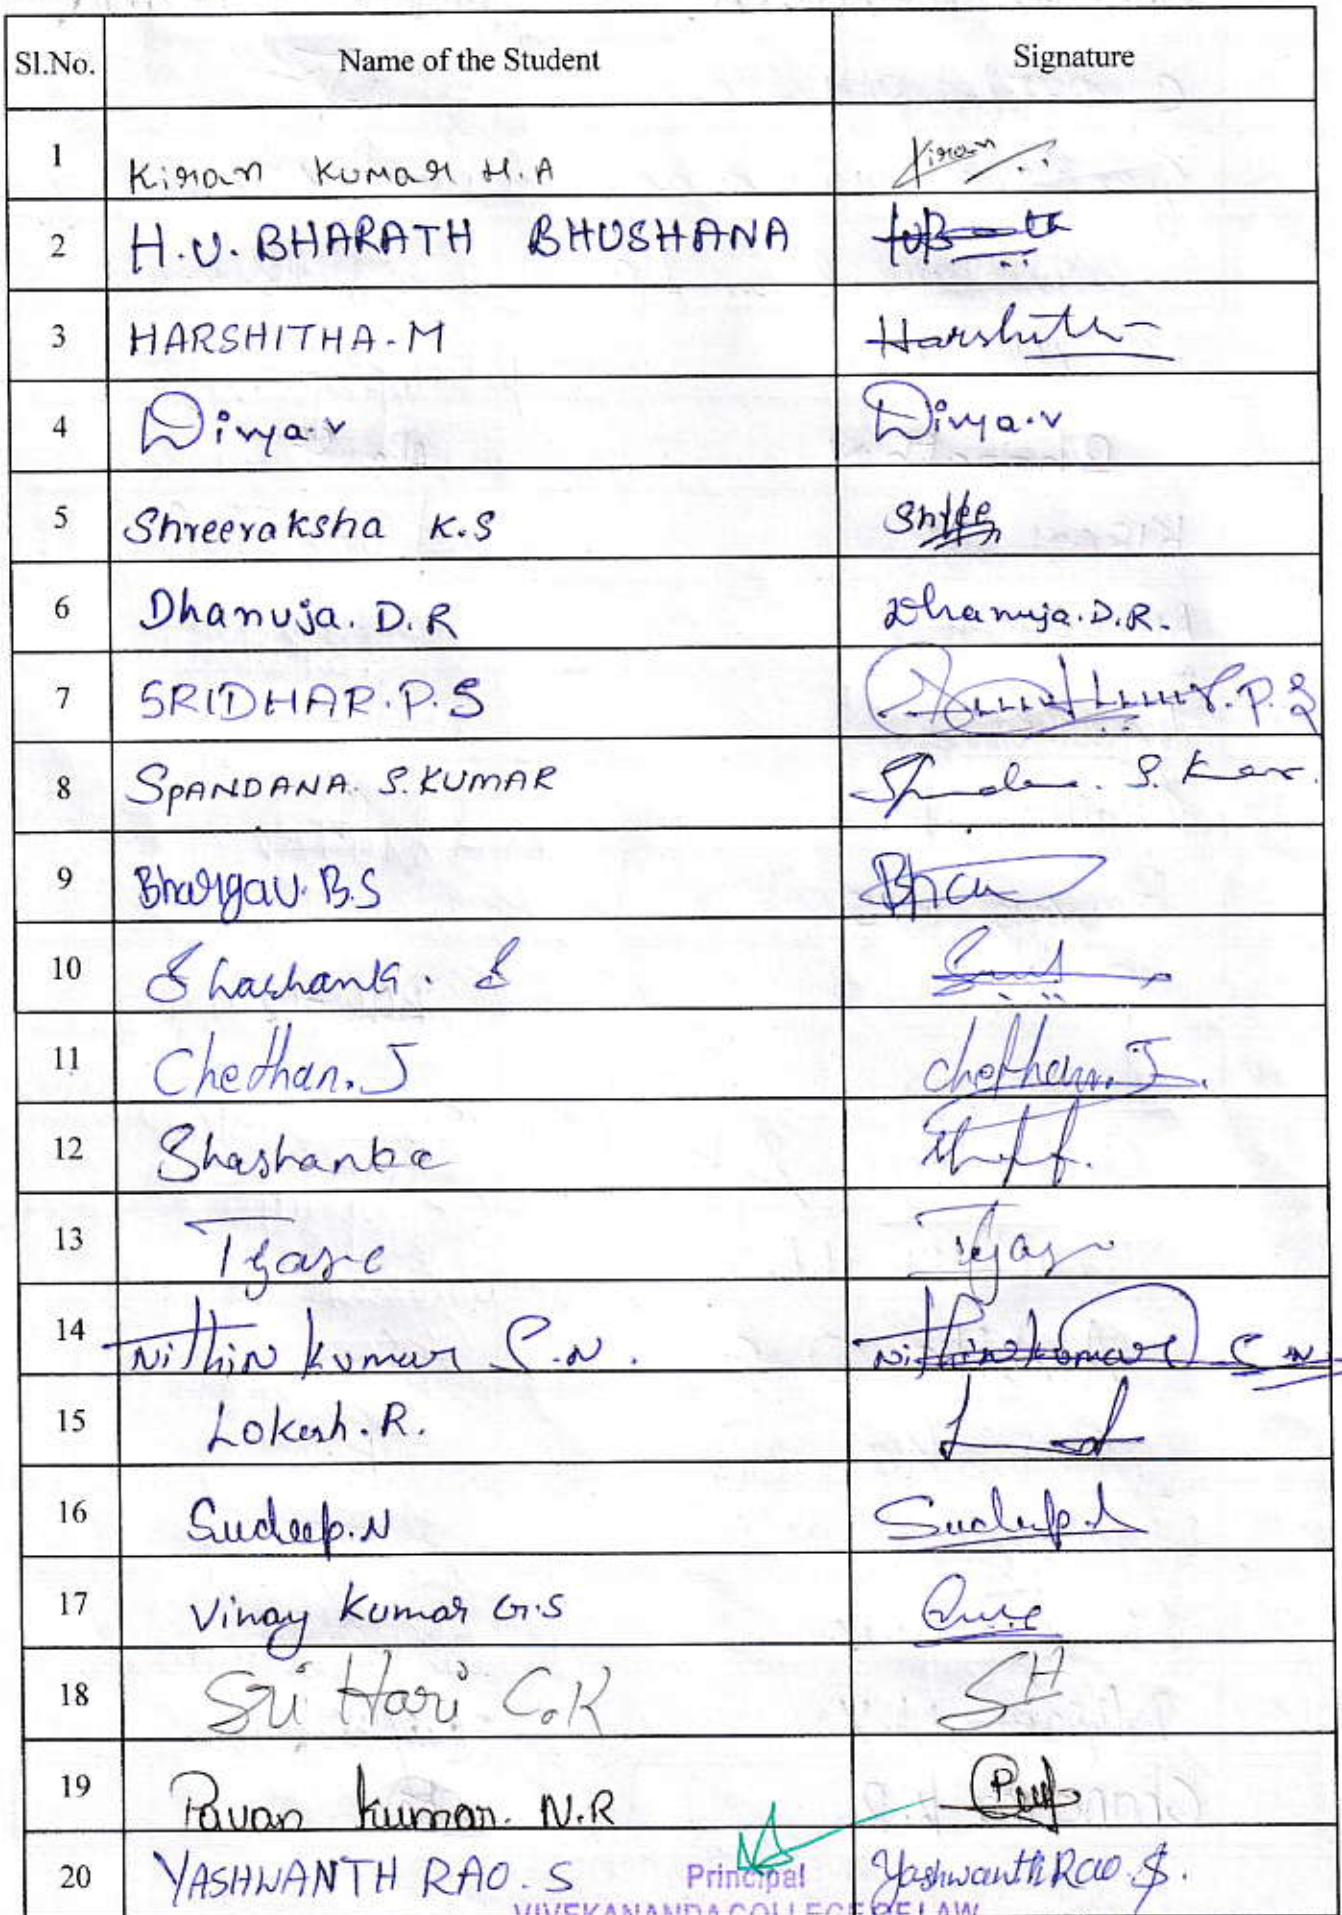 Sl.No. Name of the Student Signature
1 Kiran Kumar H.A Kiran
2 H.U. BHARATH BHUSHANA
3 HARSHITHA-M Harshitha
4 Divya.v Divya.v
5 Shreeraksha K.S Shree
6 Dhanuja.D.R Dhanuja.D.R.
7 SRIDHAR.P.S P.S
8 SPANDANA. S.KUMAR S. Kumar.
9 Bhargav.B.S
10 Shashank. S
11 Chethan.J chethan.J.
12 Shashanka
13 Tejas
14 Nithin kumar C.N. Nithin kumar C N
15 Lokesh.R.
16 Sudeep.N Sudeep.N
17 Vinay Kumar G.S
18 Sri Hari C.K SH
19 Pavan kumar. N.R
20 YASHWANTH RAO.S Yashwanth Rao.S.
Principal
VIVEKANANDA COLLEGE OF LAW